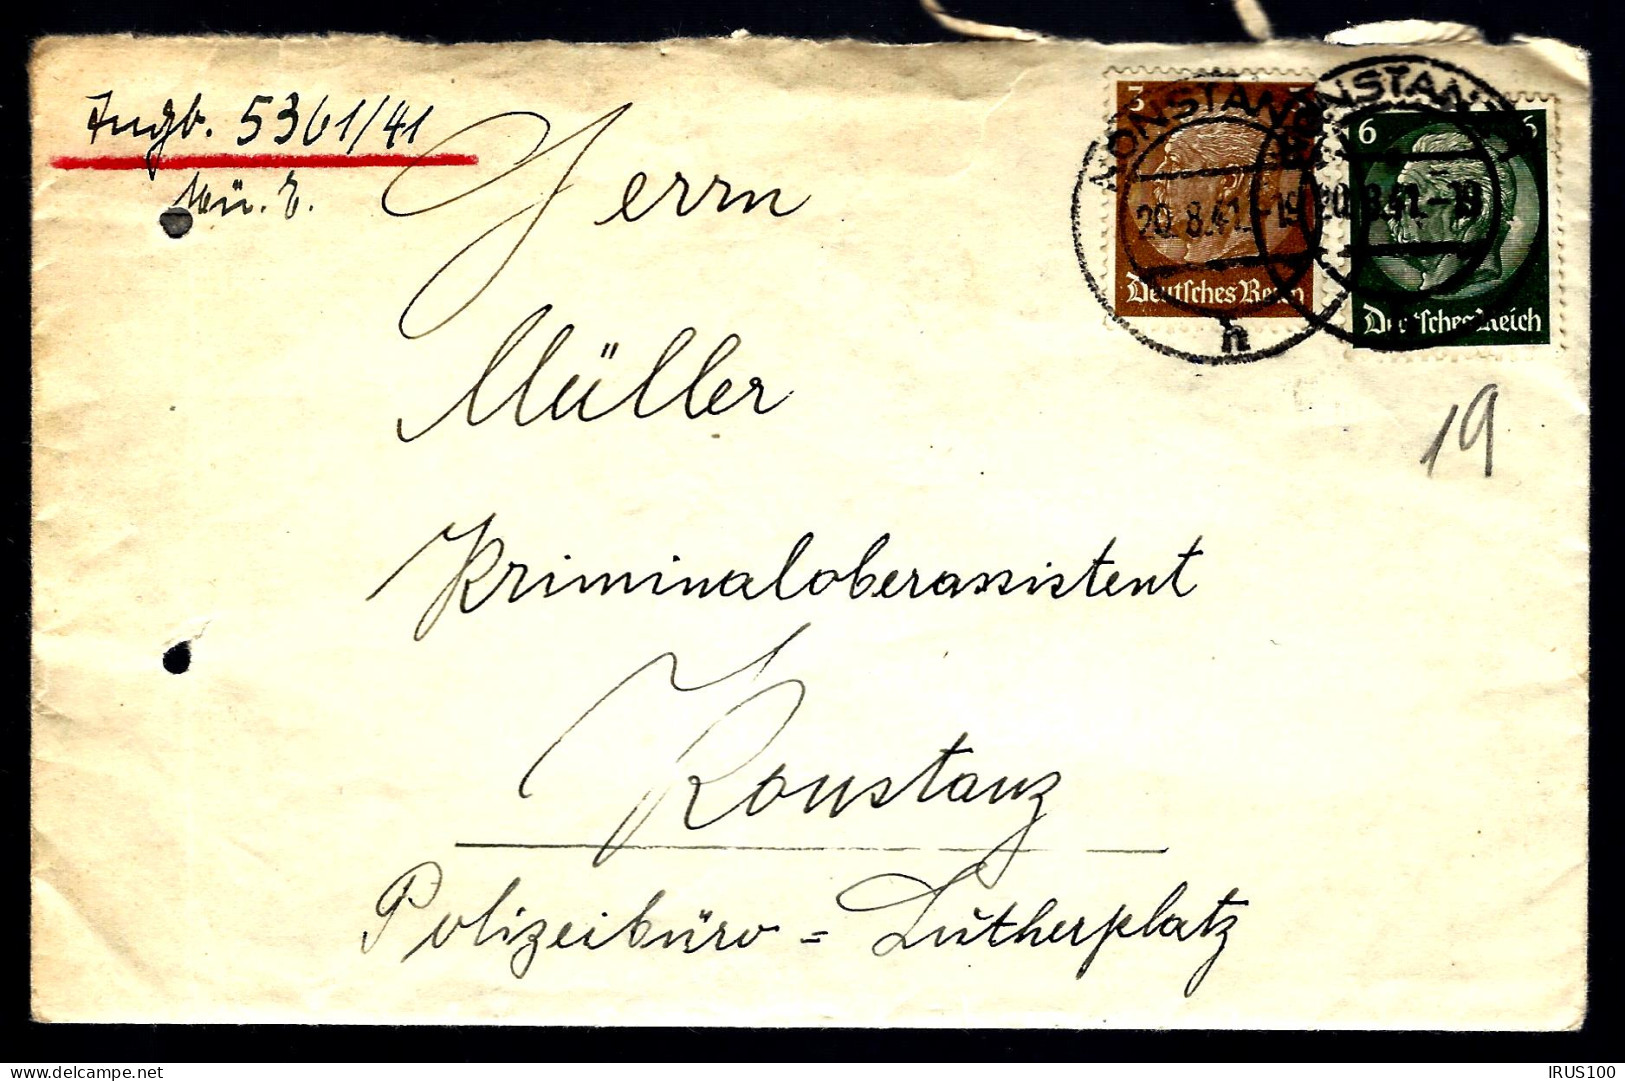 5361/41
Herrn
Müller
Kriminaloberassistent
Konstanz
Polizeibüro = Lutherplatz
3
KONSTANZ
20.8.41.-19
h
Deutsches Reich
6 6
KONSTANZ
20.8.41.-19
Deutsches Reich
19
IRUS100